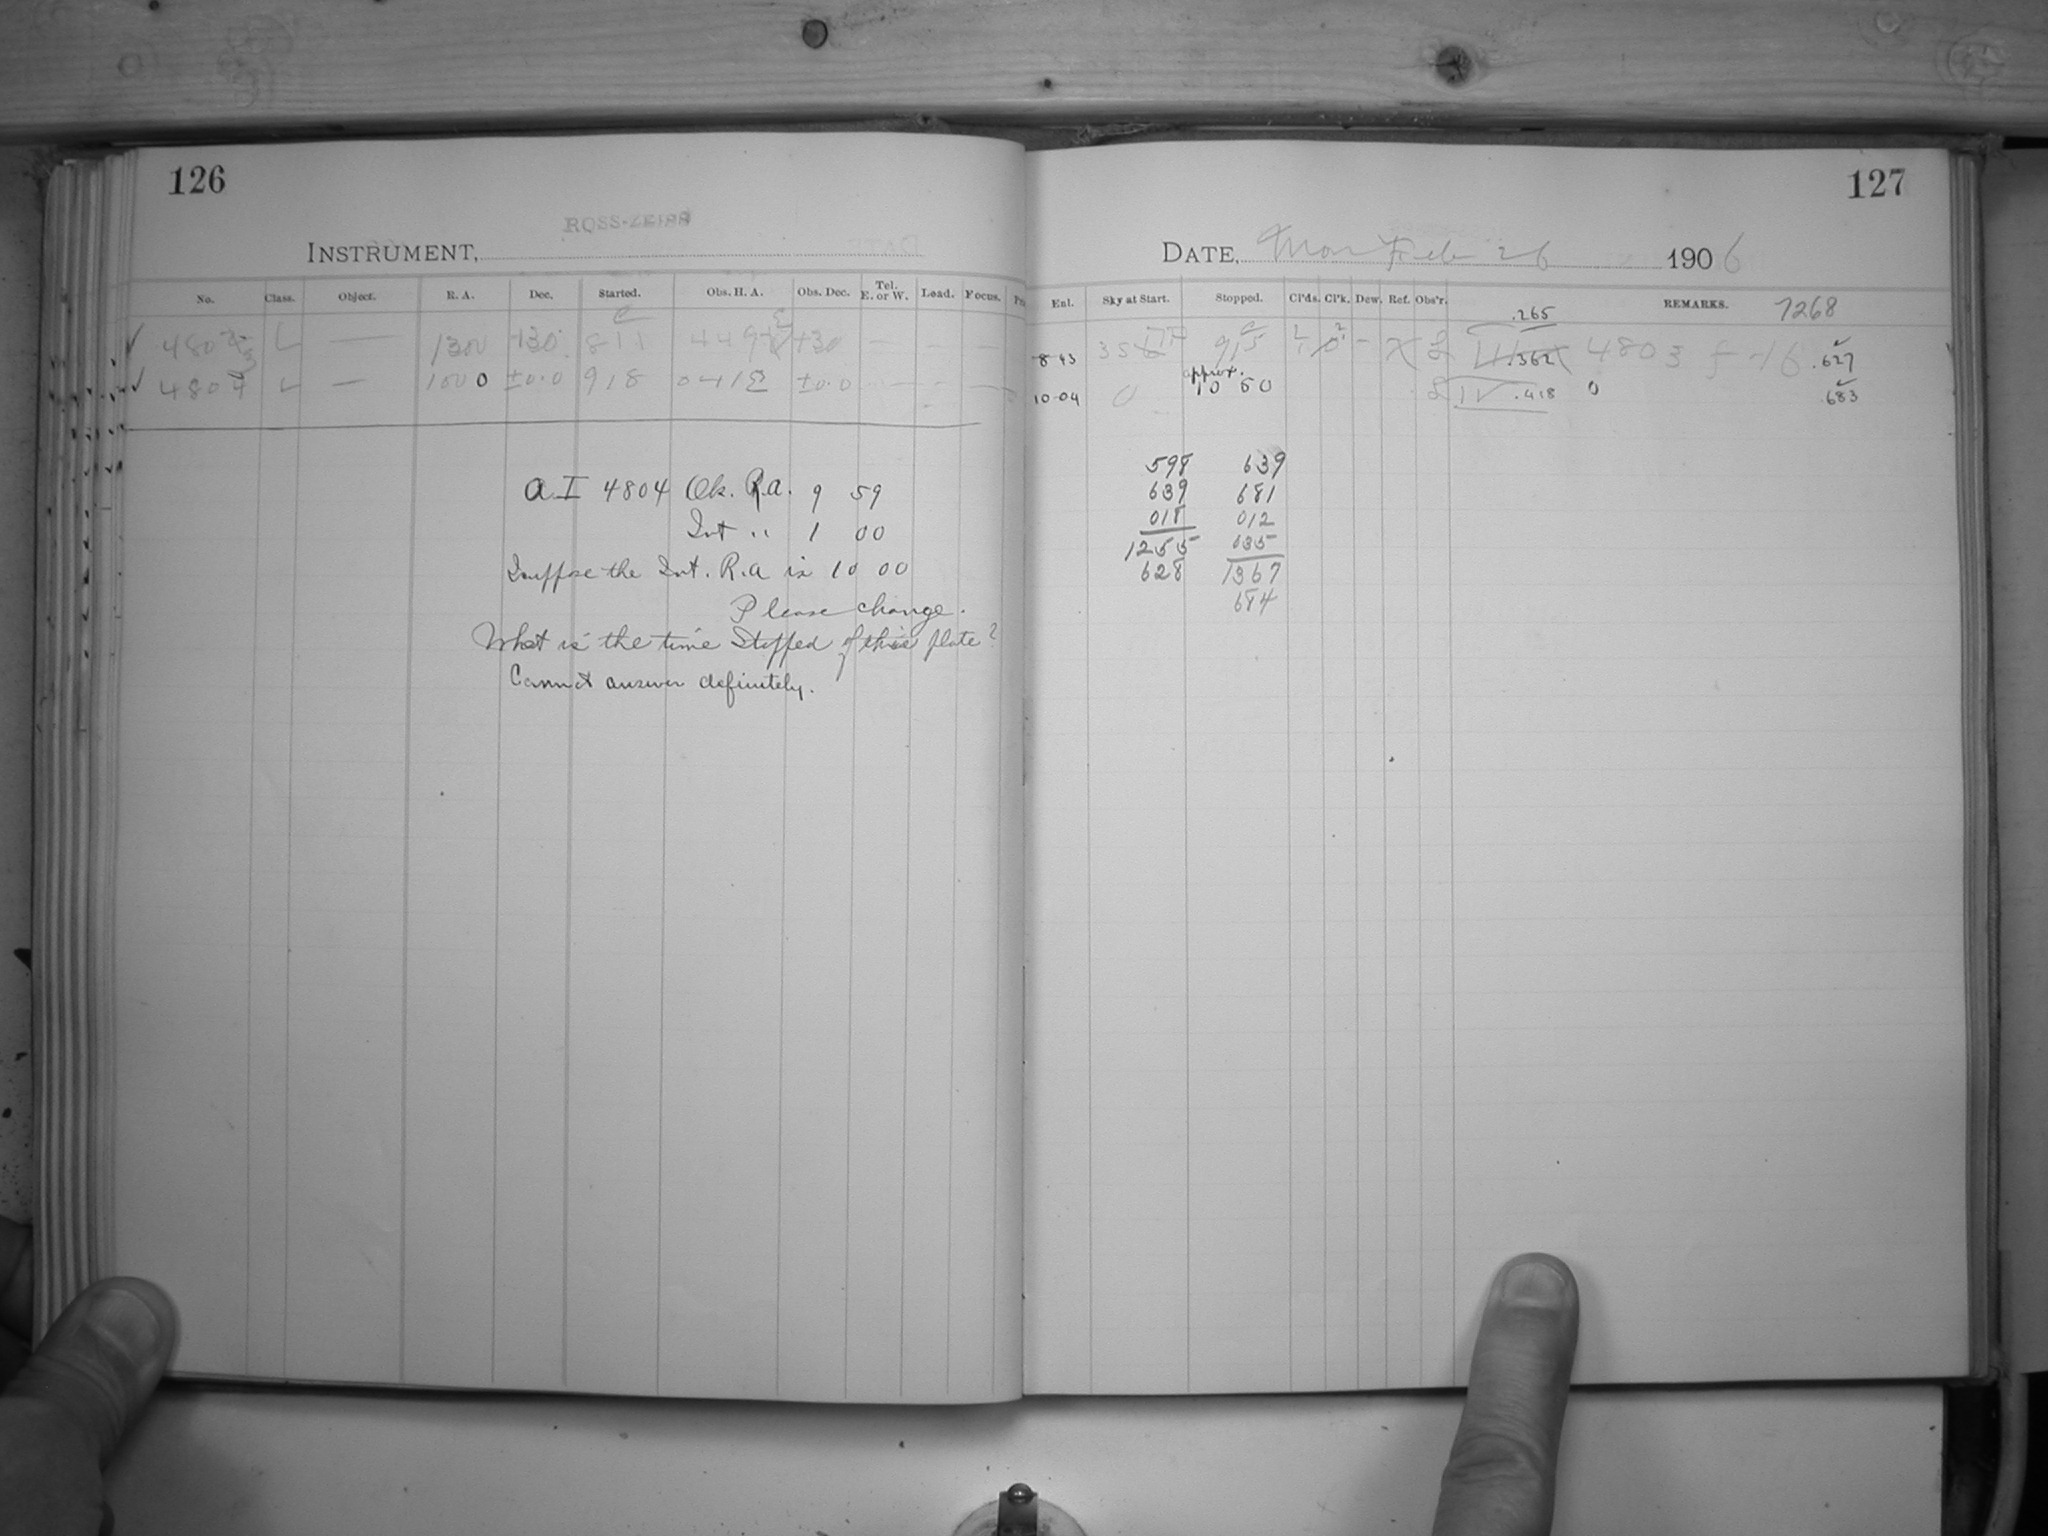 126
ROSS-ZEISS
INSTRUMENT,
No. Class. Object. R. A. Dec. Started. Obs. H. A. Obs. Dec. Tel. E. or W. Load. Focus.
✓ 4803 L — 1300 +30 811 449 E +30 — — — —
✓ 4804 L — 1000 ±0.0 918 041 E ±0.0 — — — —
A I 4804 Ok. R.A. 9 59
Int " 1 00
I suppose the Int. R.A is 10 00
Please change.
What is the time Stopped of this plate?
Cannot answer definitely.
127
DATE, Mon Feb 26 1906
Enl. Sky at Start. Stopped. Cl'ds. Cl'k. Dew. Ref. Obs'r. REMARKS. 7268
.265
8 43 915 .362 4803 .627
approx.
10 04 0 10 50 .418 0 .683
598 639
639 681
018 012
1255 035
628 1367
684